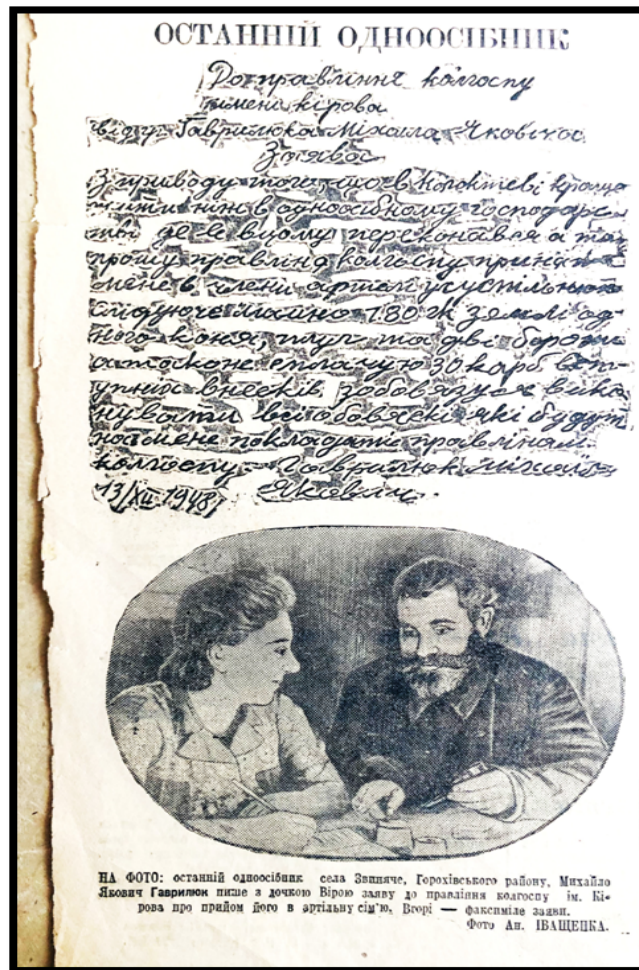 ОСТАННІЙ ОДНООСІБНИК
До правління колгоспу
імени кірова
від гр. Гаврилюка Міхаіла Яковича
Заява
З приводу того, що в колективі краще
жити ніж в одноосібному господарс-
тві де я в цьому переконався а то
прошу правлінд колгоспу принять
мене в члени артелі усуспільнюю
слідуюче майно 1.80 га землі од-
ного коня, плуг та дві борони
также сплачую 30 карб. всту-
пних внесків зобовязуся вико-
нувати всі обовязкі які будут
на мене покладати правлінам
колгоспу Гаврилюк Міхаіл
13/XII 1948 Якович.
НА ФОТО: останній одноосібник села Звиняче, Горохівського району, Михайло
Якович Гаврилюк пише з дочкою Вірою заяву до правління колгоспу ім. Кі-
рова про прийом його в артільну сім'ю. Вгорі — факсиміле заяви.
Фото Ан. ІВАЩЕНКА.